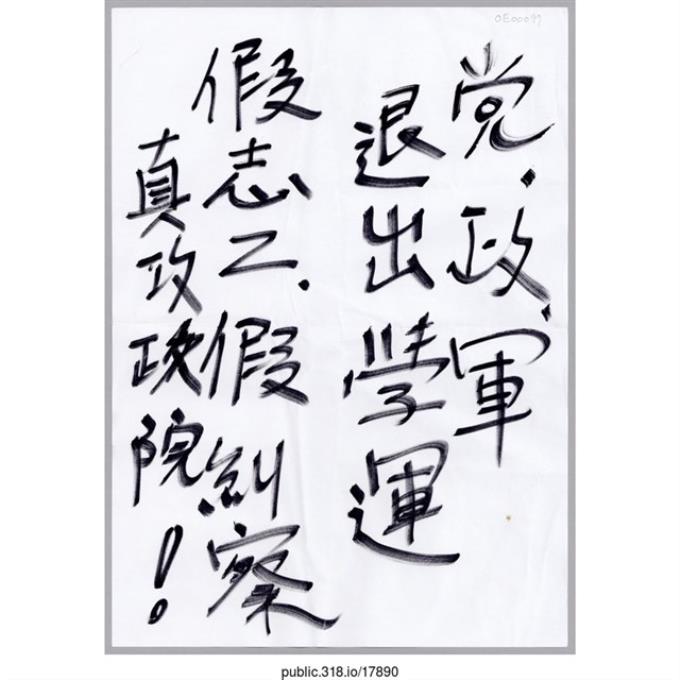 OE00097
党、政、軍
退出學運
假志工、假糾察
真攻政院！
public.318.io/17890